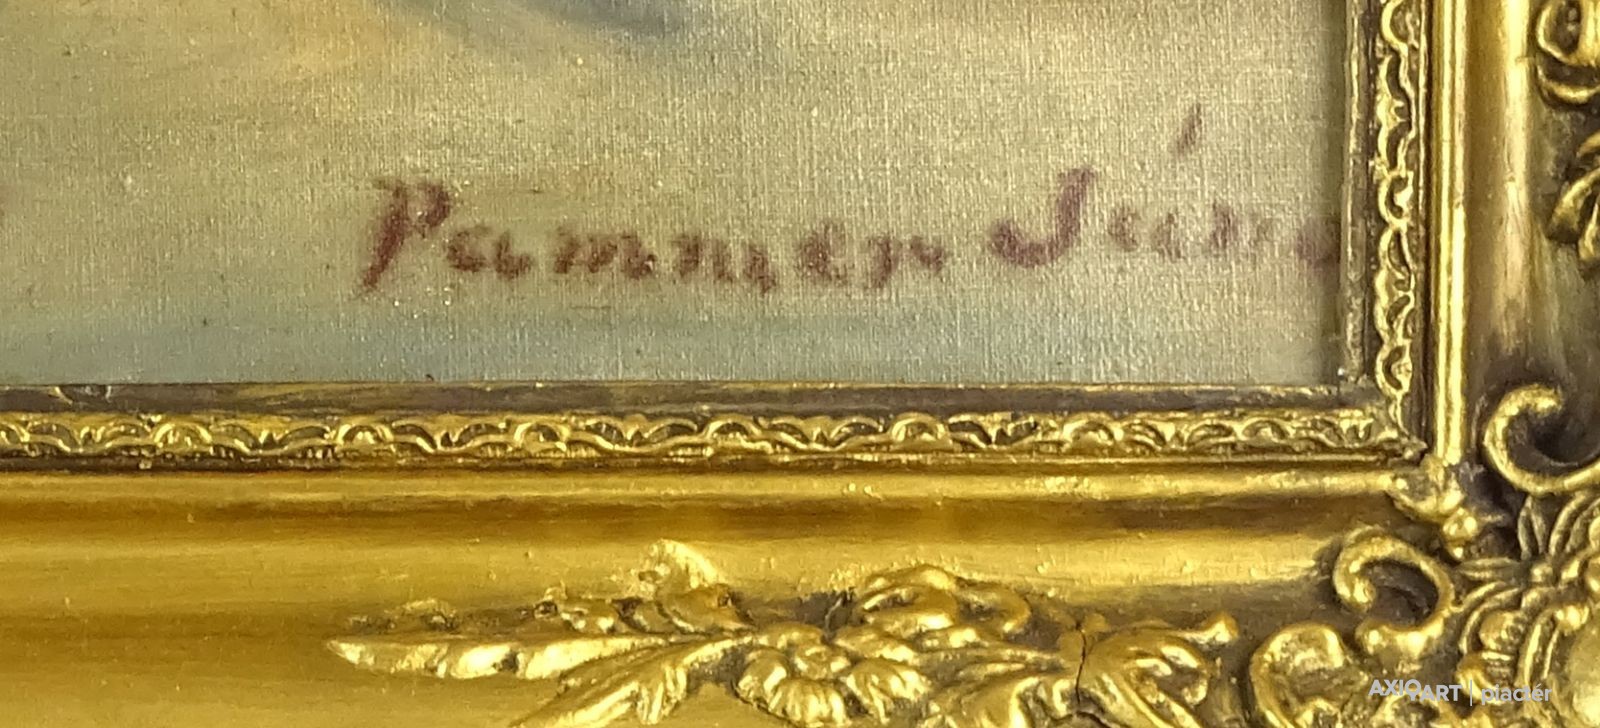 Pammer Jáno
AXIOART | piactér